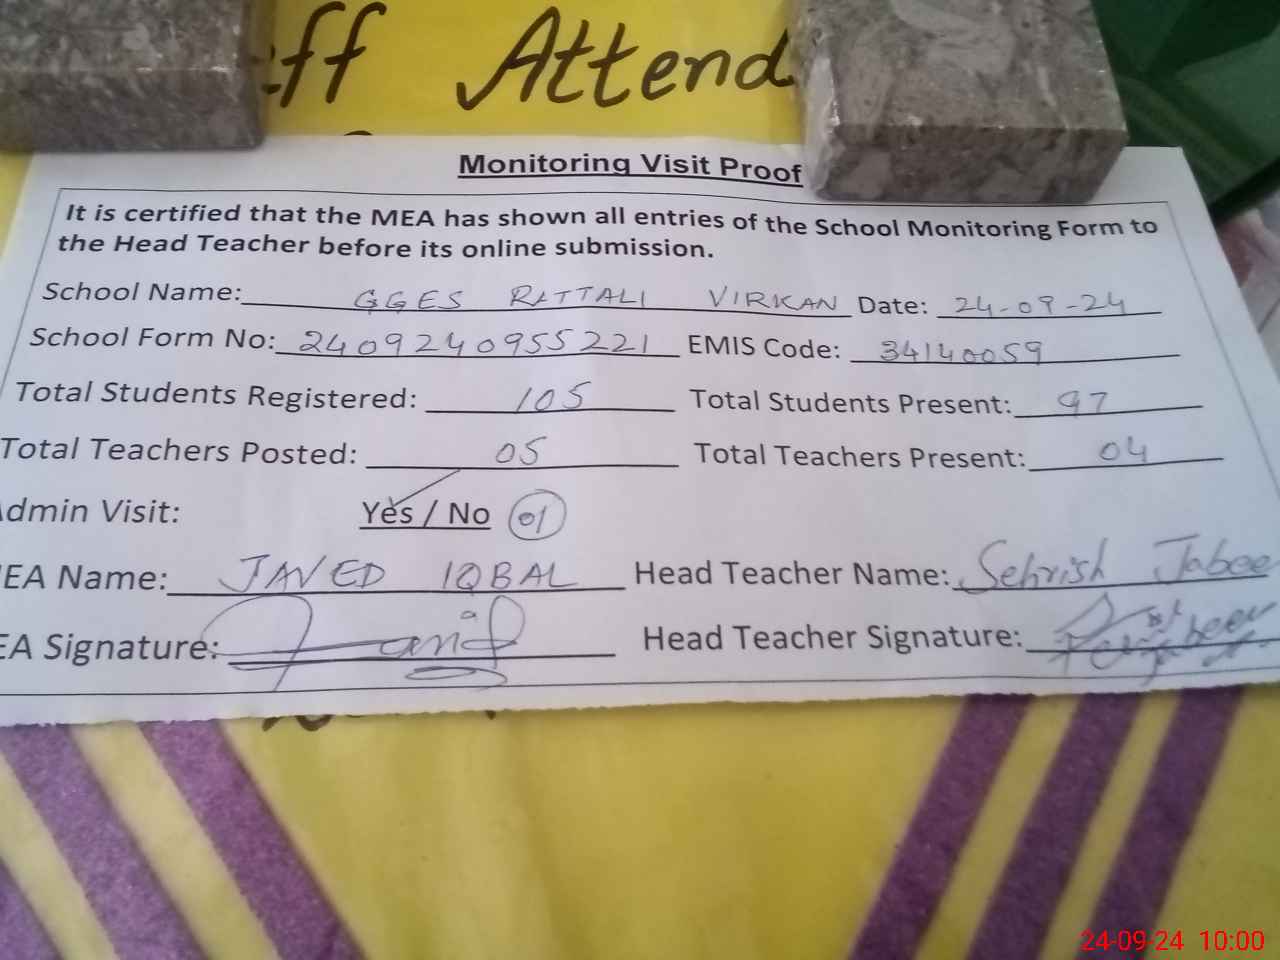 ff Attend
Monitoring Visit Proof
It is certified that the MEA has shown all entries of the School Monitoring Form to
the Head Teacher before its online submission.
School Name: GGES RATTALI VIRKAN Date: 24-09-24
School Form No: 2409240955221 EMIS Code: 34140059
Total Students Registered: 105 Total Students Present: 97
Total Teachers Posted: 05 Total Teachers Present: 04
dmin Visit: Yes / No 01
EA Name: JAVED IQBAL Head Teacher Name: Sehrish Jabee
EA Signature: Head Teacher Signature:
24-09-24 10:00